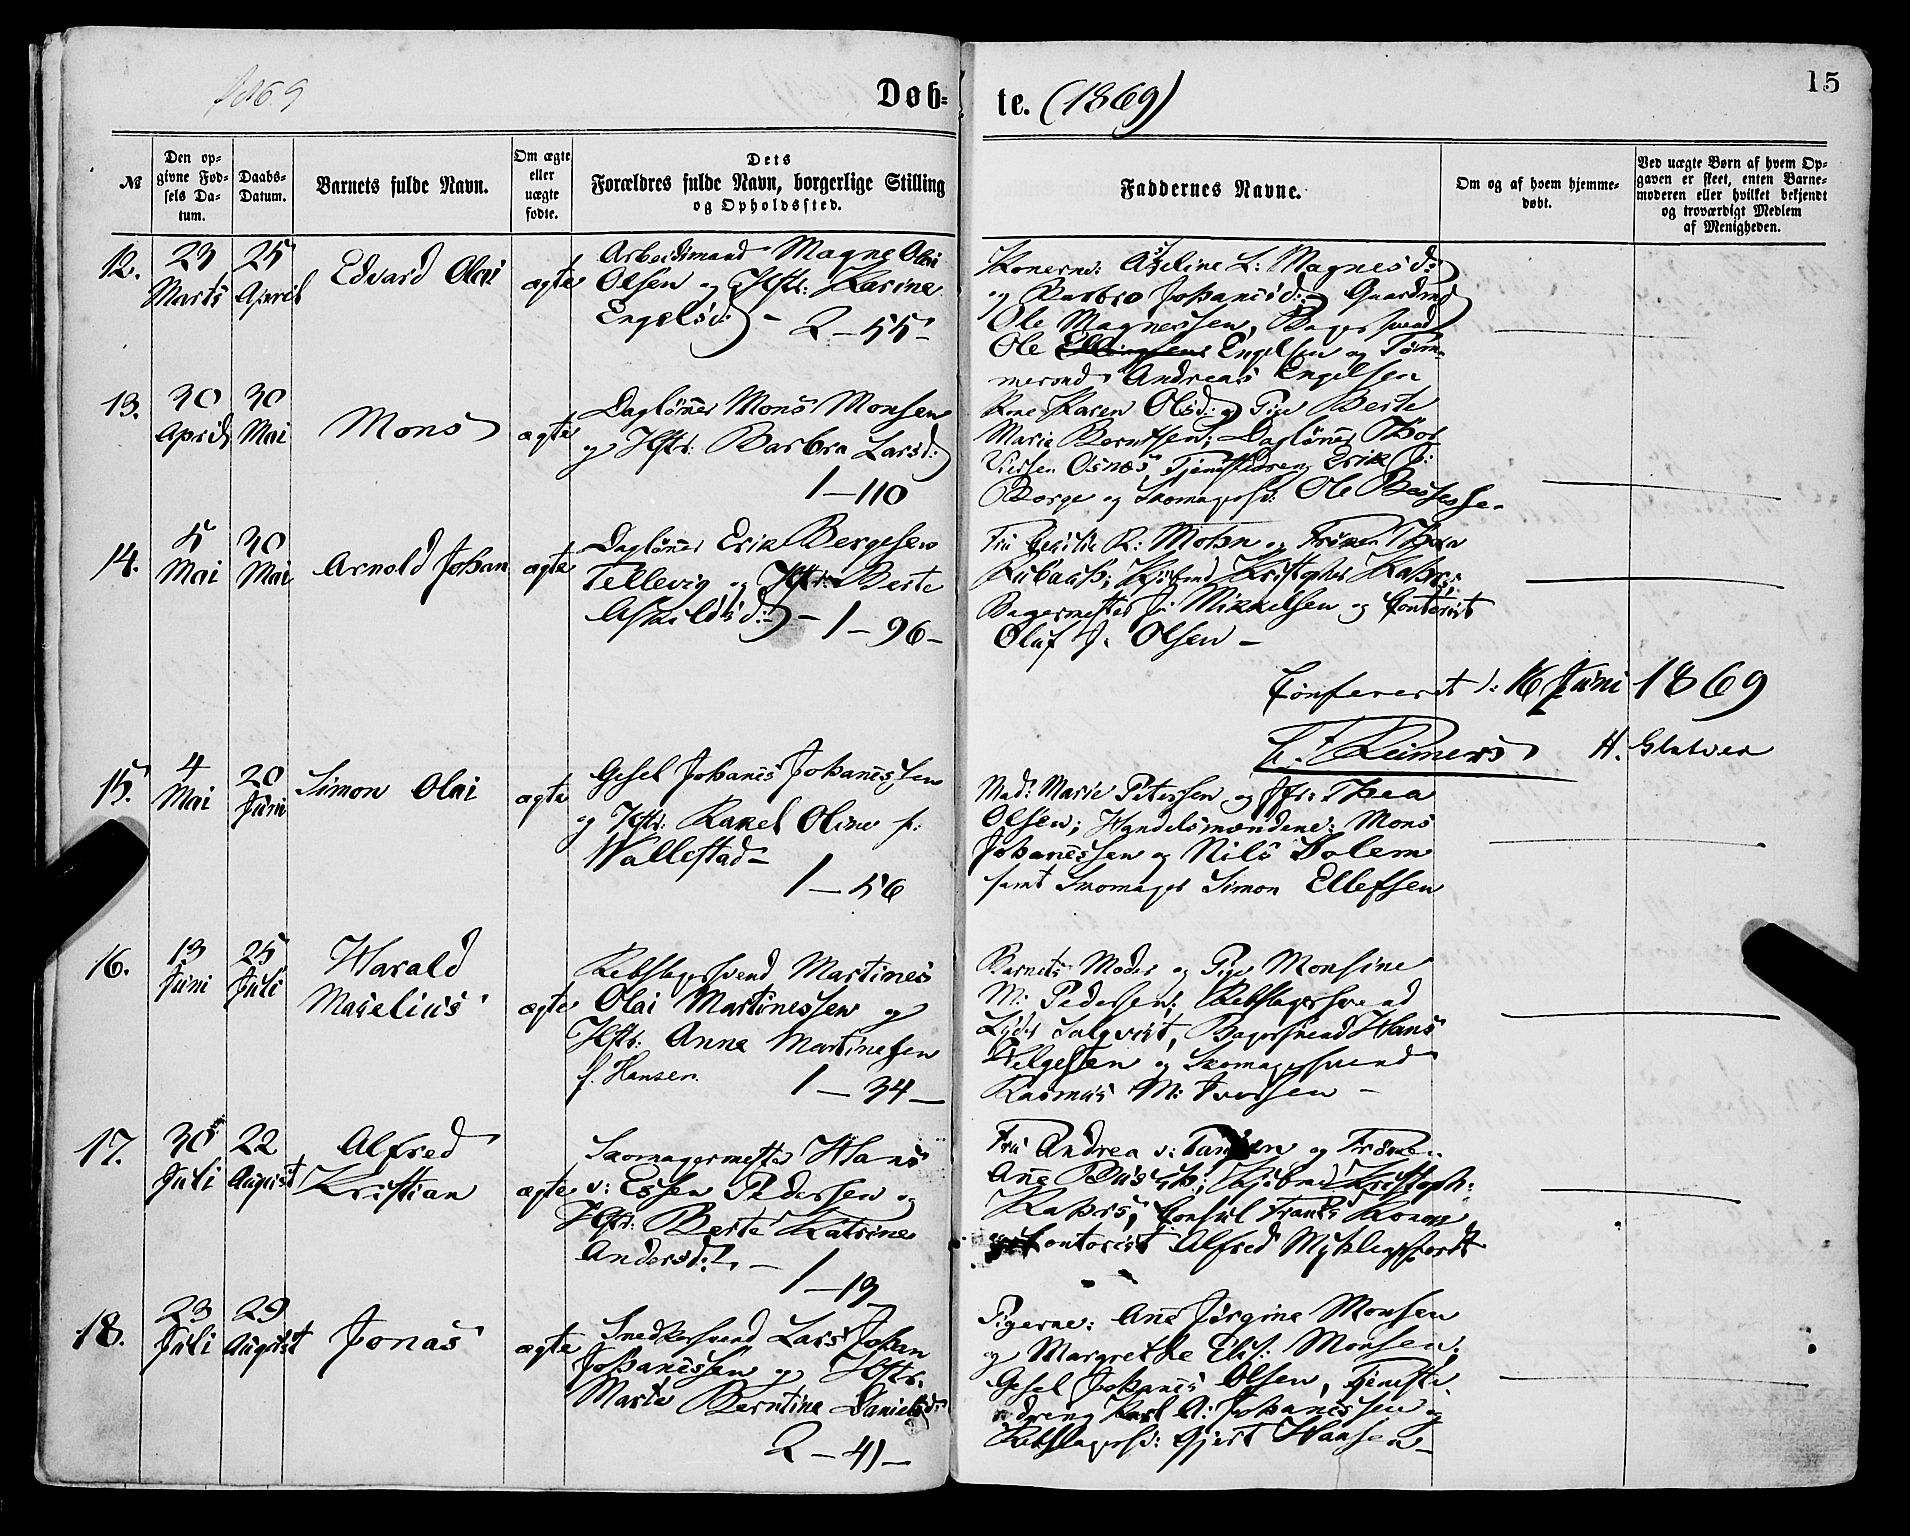 1869
Døb-
te. (1869)
15
№
Den op-
givne Fød-
sels Da-
tum.
Daabs-
Datum.
Barnets fulde Navn.
Om ægte
eller
uægte
fødte.
Dets
Forældres fulde Navn, borgerlige Stilling
og Opholdssted.
Faddernes Navne.
Om og af hvem hjemme-
døbt.
Ved uægte Børn af hvem Op-
gaven er skeet, enten Barne-
moderen eller hvilket bekjendt
og troværdigt Medlem
af Menigheden.
12.
23
Marts
25
April
Edvard Olai
ægte
Arbeidsmand Magne Olai
Olsen og Hstr: Karine
Engelsd:
2-55
Konerne: Aseline L: Magnesd:
og Barbro Johanesd: Gaardmd
Ole Magnessen, Bagersvend
Ole Engelsen og Tøm-
mermd Andreas Engelsen
13.
30
April
30
Mai
Mons
ægte
Daglønner Mons Monsen
og Hstr: Barbra Larsd:
1-110
Kone Karen Olsd: og Pige Berte
Marie Berntsen; Daglønner Thor
Osnes, Tjenestedreng Erik J:
Borge og Skomagersv: Ole
14.
5
Mai
30
Mai
Arnold Johan
ægte
Daglønner Erik Bergesen
Tellevig og Hstr: Berte
Askildsd:
-1-96-
Fru R: Mohn og Frøken Thora
Kubauch; Kjøbmd Kristopher Kahrs;
Bagermester J: Mikkelsen og Contorist
Oluf J. Olsen-
Confereret d: 16 Juni 1869
Reimers
H.
15.
4
Mai
20
Juni
Simon Olai
ægte
Gesel Johanes Johanessen
og Hstr: Rakel Oline f:
Wallestad-
1-56
Mad: Marie Petersen og Jfr: Thea
Olsen; Handelsmændene: Mons
Johanessen og Nils Solem
samt Skomager Simon Ellefsen
16.
13
Juni
25
Juli
Harald
Marelius
ægte
Rebslagersvend Martines
Olai Martinessen og
Hstr: Anna Martinesen
f. Hansen.
1-34-
Barnets Moder og Pige Monsine
M: Pedersen; Rebslagersvend
Lyder Salqvist, Bagersvend Hans
Helgesen og Skomagersvend
Rasmus M: Iversen -
17.
30
Juli
22
August
Alfred
Kristian
ægte
Skomagermester Hans
v: Essen Pedersen og
Hstr: Berte Katrine
Andersd:
-1-19
Fru Andrea v: Tangen og Frøken
Ane Kjøbmd Kristoph:
Kahrs; Consul Frants Konow
og Contorist Alfred
18.
23
Juli
29
August
Jonas
ægte
Snedkersvend Lars Johan
Johanessen og Hstr:
Marie Berntine Danielsd:
2-41-
Pigerne: Ane Jørgine Monsen
og Margrethe Elis: Monsen;
Gesel Johanes Olsen, Tjeneste-
dreng Karl A: Johanessen og
Rebslagersv: Gjert Hansen-